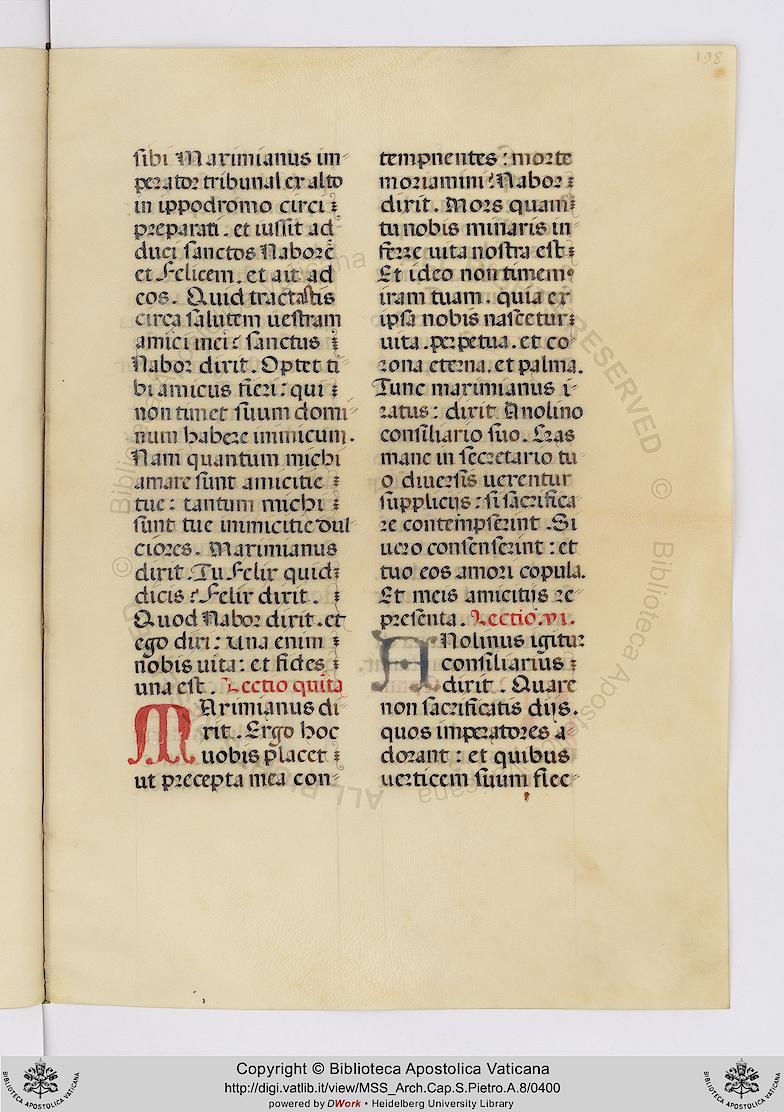 198
sibi Maximianus im-
perator tribunal ex alto
in ippodromo circi
preparari. et iussit ad
duci sanctos Naborē
et Felicem. et ait ad
eos. Quid tractastis
circa salutem uestram
amici mei: sanctus
Nabor dixit. Optet ti
bi amicus fieri: qui
non timet suum domi-
num habere inimicum.
Nam quantum michi
amare sunt amicitie
tue: tantum michi
sunt tue inimicitie dul-
ciores. Maximianus
dixit. Tu Felix quid
dicis: Felix dixit.
Quod Nabor dixit. et
ego dixi: una enim
nobis uita: et fides
una est. Lectio quīta
MAximianus di-
xit. Ergo hoc
uobis placet
ut precepta mea con-
tempnentes: morte
moriamini: Nabor
dixit. Mors quam
tu nobis minaris in-
ferre uita nostra est
Et ideo non timem9
iram tuam. quia ex
ipsa nobis nascetur
uita perpetua. et co-
rona eterna. et palma.
Tunc maximianus i-
ratus: dixit Anolino
consiliario suo. Cras
mane in secretario tu
o diuersis uerentur
supplicijs: si sacrifica
re contempserint. Si
uero consenserint: et
tuo eos amori copula.
Et meis amicitijs re-
presenta. Lectio. vi.
ANolinus igitur
consiliarius
dixit. Quare
non sacrificatis dijs.
quos imperatores a-
dorant: et quibus
uerticem suum flec-
Copyright © Biblioteca Apostolica Vaticana
http://digi.vatlib.it/view/MSS_Arch.Cap.S.Pietro.A.8/0400
powered by DWork • Heidelberg University Library
BIBLIOTECA APOSTOLICA VATICANA
BIBLIOTECA APOSTOLICA VATICANA